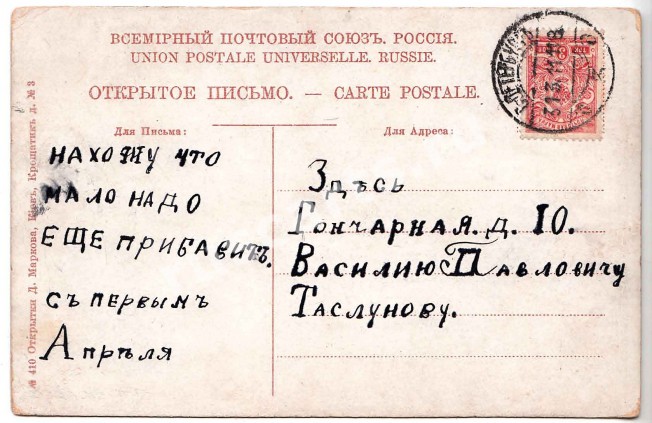 ВСЕМІРНЫЙ ПОЧТОВЫЙ СОЮЗЪ. РОССІЯ.
UNION POSTALE UNIVERSELLE. RUSSIE.
ОТКРЫТОЕ ПИСЬМО. — CARTE POSTALE.
Для Письма:
Для Адреса:
НАХОЖУ ЧТО
МАЛО НАДО
ЕЩЕ ПРИБАВИТЬ.
СЪ ПЕРВЫМЪ
АПРѢЛЯ
Здѣсь
Гончарная. д. 10.
Василию Павловичу
Таслунову.
№ 410 Открытки Д. Маркова, Кіевъ, Крещатикъ д. № 3